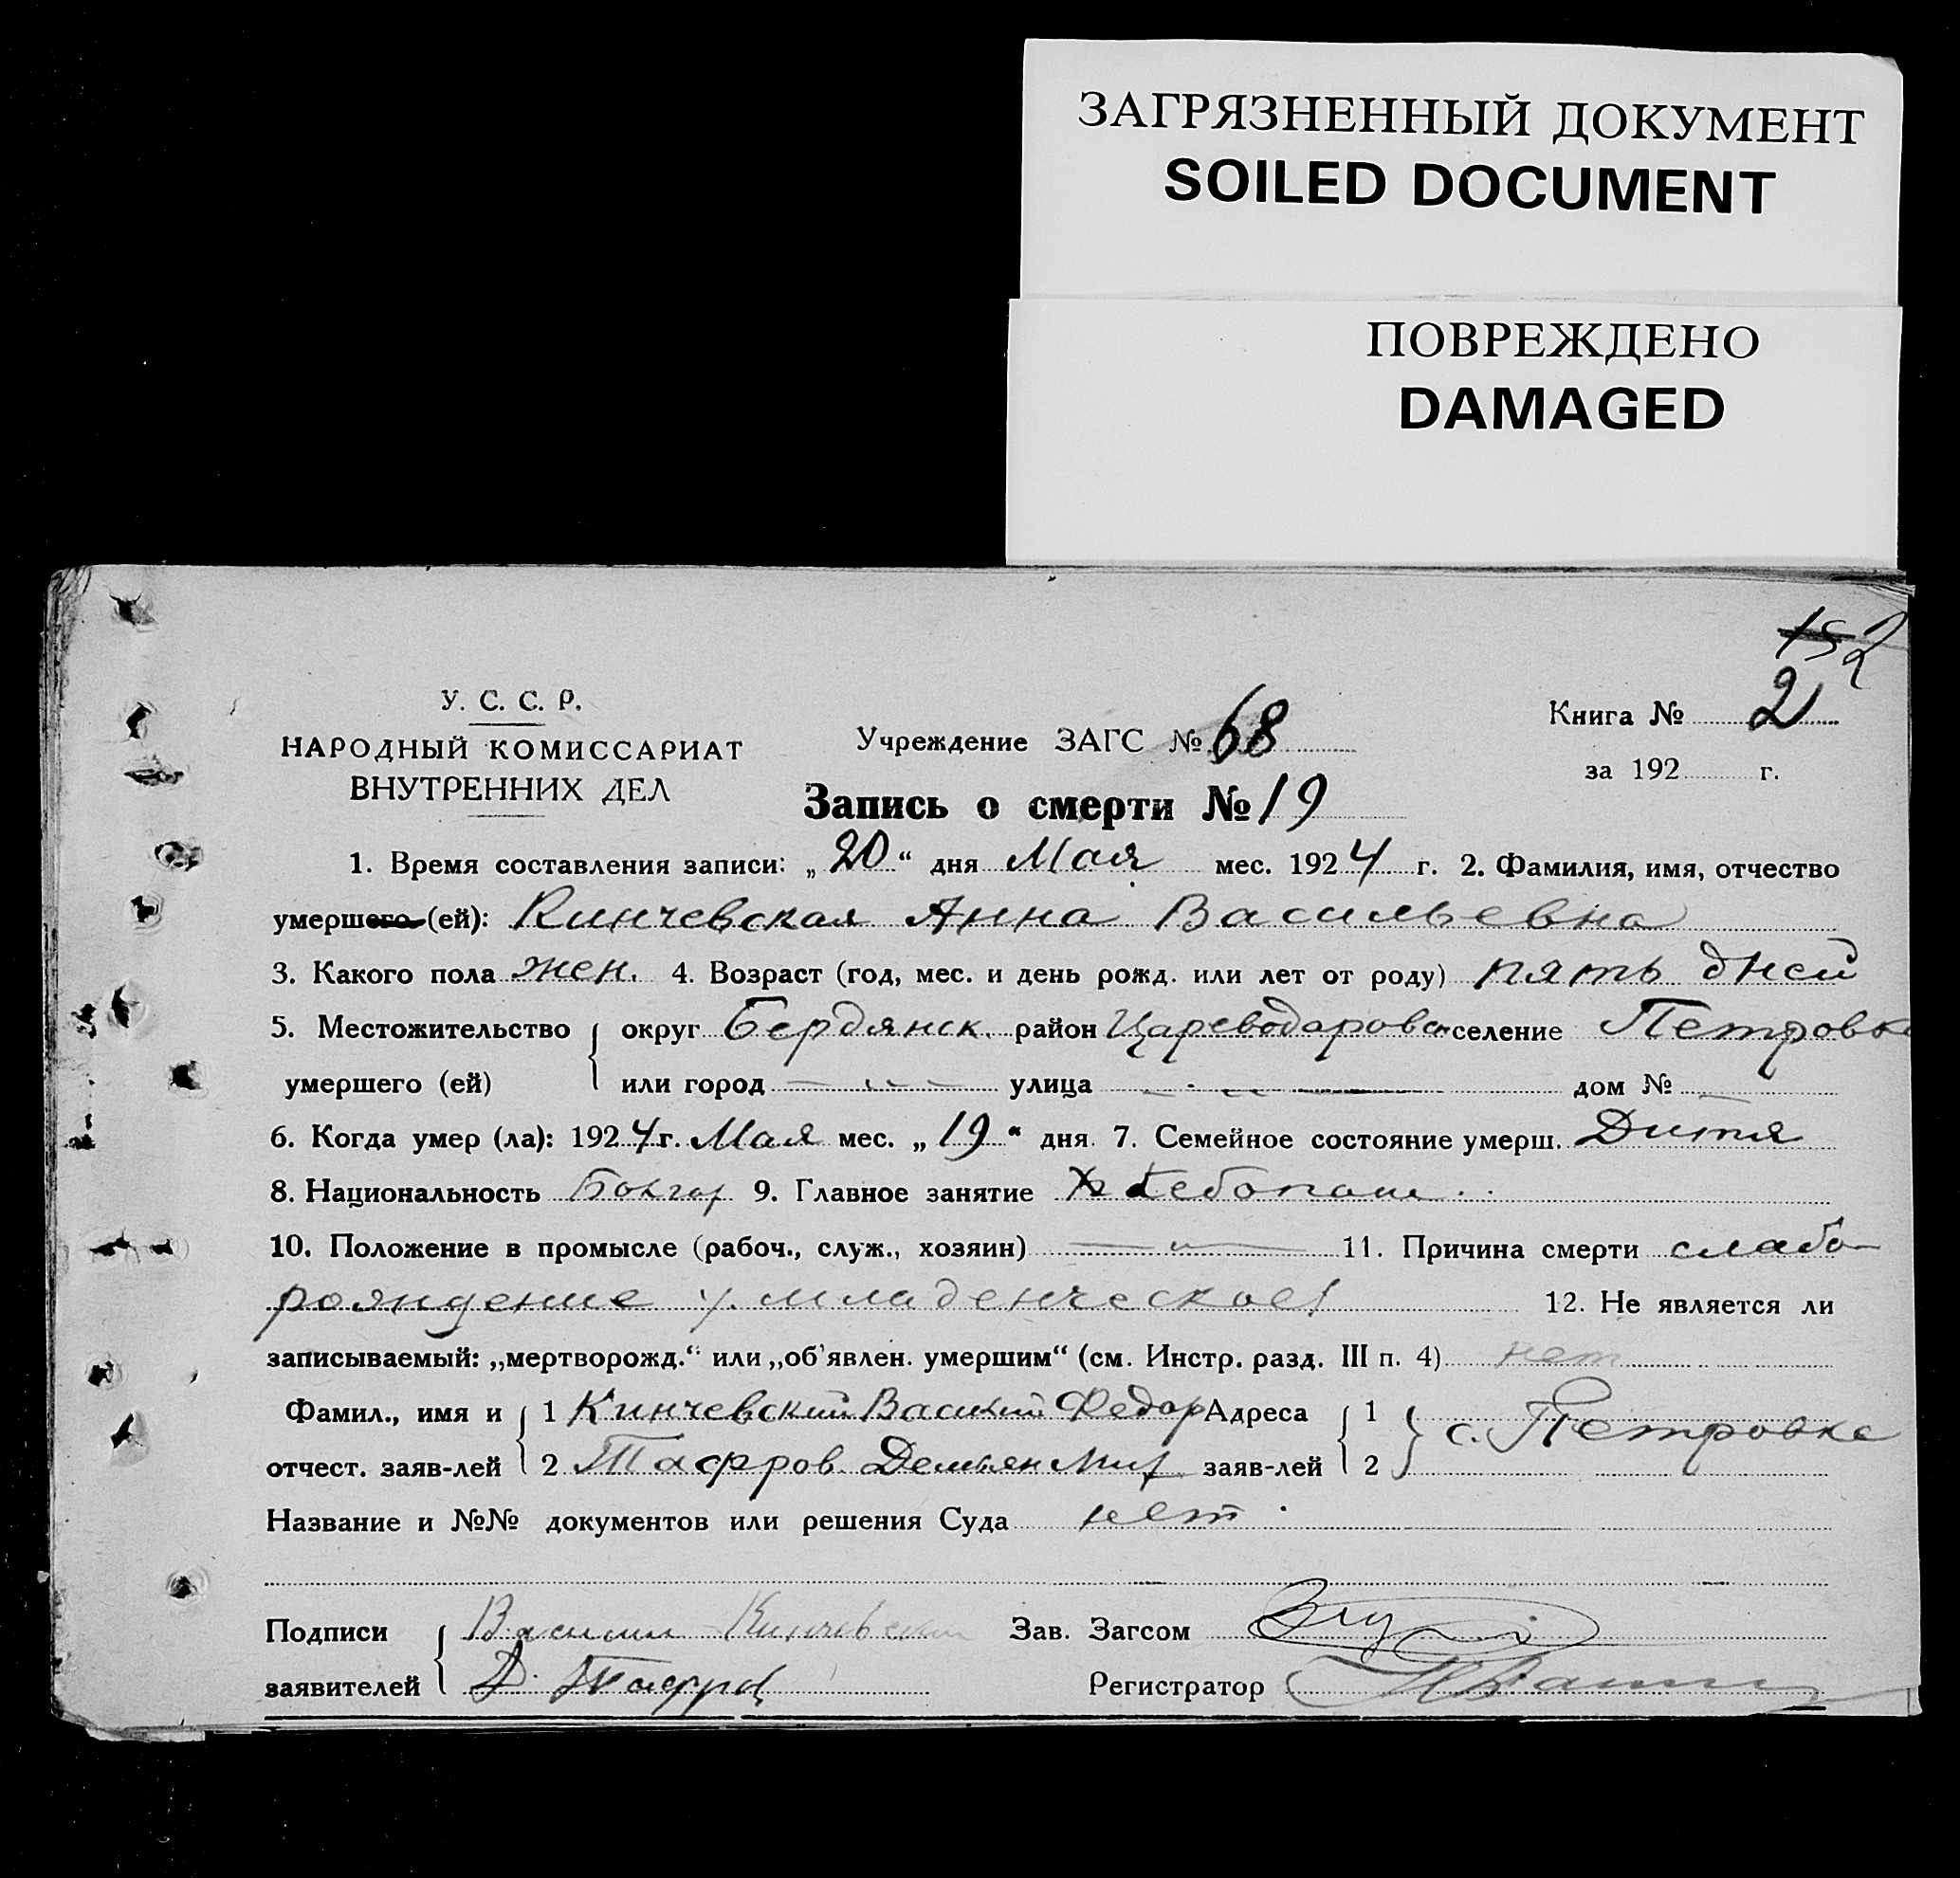 ЗАГРЯЗНЕННЫЙ ДОКУМЕНТ
SOILED DOCUMENT
ПОВРЕЖДЕНО
DAMAGED
152
У. С. С. Р.
НАРОДНЫЙ КОМИССАРИАТ
ВНУТРЕННИХ ДЕЛ
Учреждение ЗАГС № 68
Книга № 2
за 192 г.
Запись о смерти № 19
1. Время составления записи: „20“ дня Мая мес. 1924 г. 2. Фамилия, имя, отчество
умершего (ей): Кинчевская Анна Васильевна
3. Какого пола жен. 4. Возраст (год, мес. и день рожд. или лет от роду) пять дней
5. Местожительство округ Бердянск. район Цареводаровск селение Петровка
умершего (ей) или город улица дом №
6. Когда умер (ла): 1924 г. Мая мес. „19“ дня 7. Семейное состояние умерш. Дитя
8. Национальность Болгар 9. Главное занятие Хлебопаш.
10. Положение в промысле (рабоч., служ., хозяин) 11. Причина смерти слабо-
рождение младенческое 12. Не является ли
записываемый: „мертворожд.“ или „об'явлен. умершим“ (см. Инстр. разд. III п. 4) нет
Фамил., имя и 1 Кинчевский Василий Федор Адреса 1 с. Петровка
отчест. заяв-лей 2 Тафров Демьян Мих заяв-лей 2
Название и №№ документов или решения Суда нет
Подписи Василий Кинчевский Зав. Загсом
заявителей Д. Тафров Регистратор